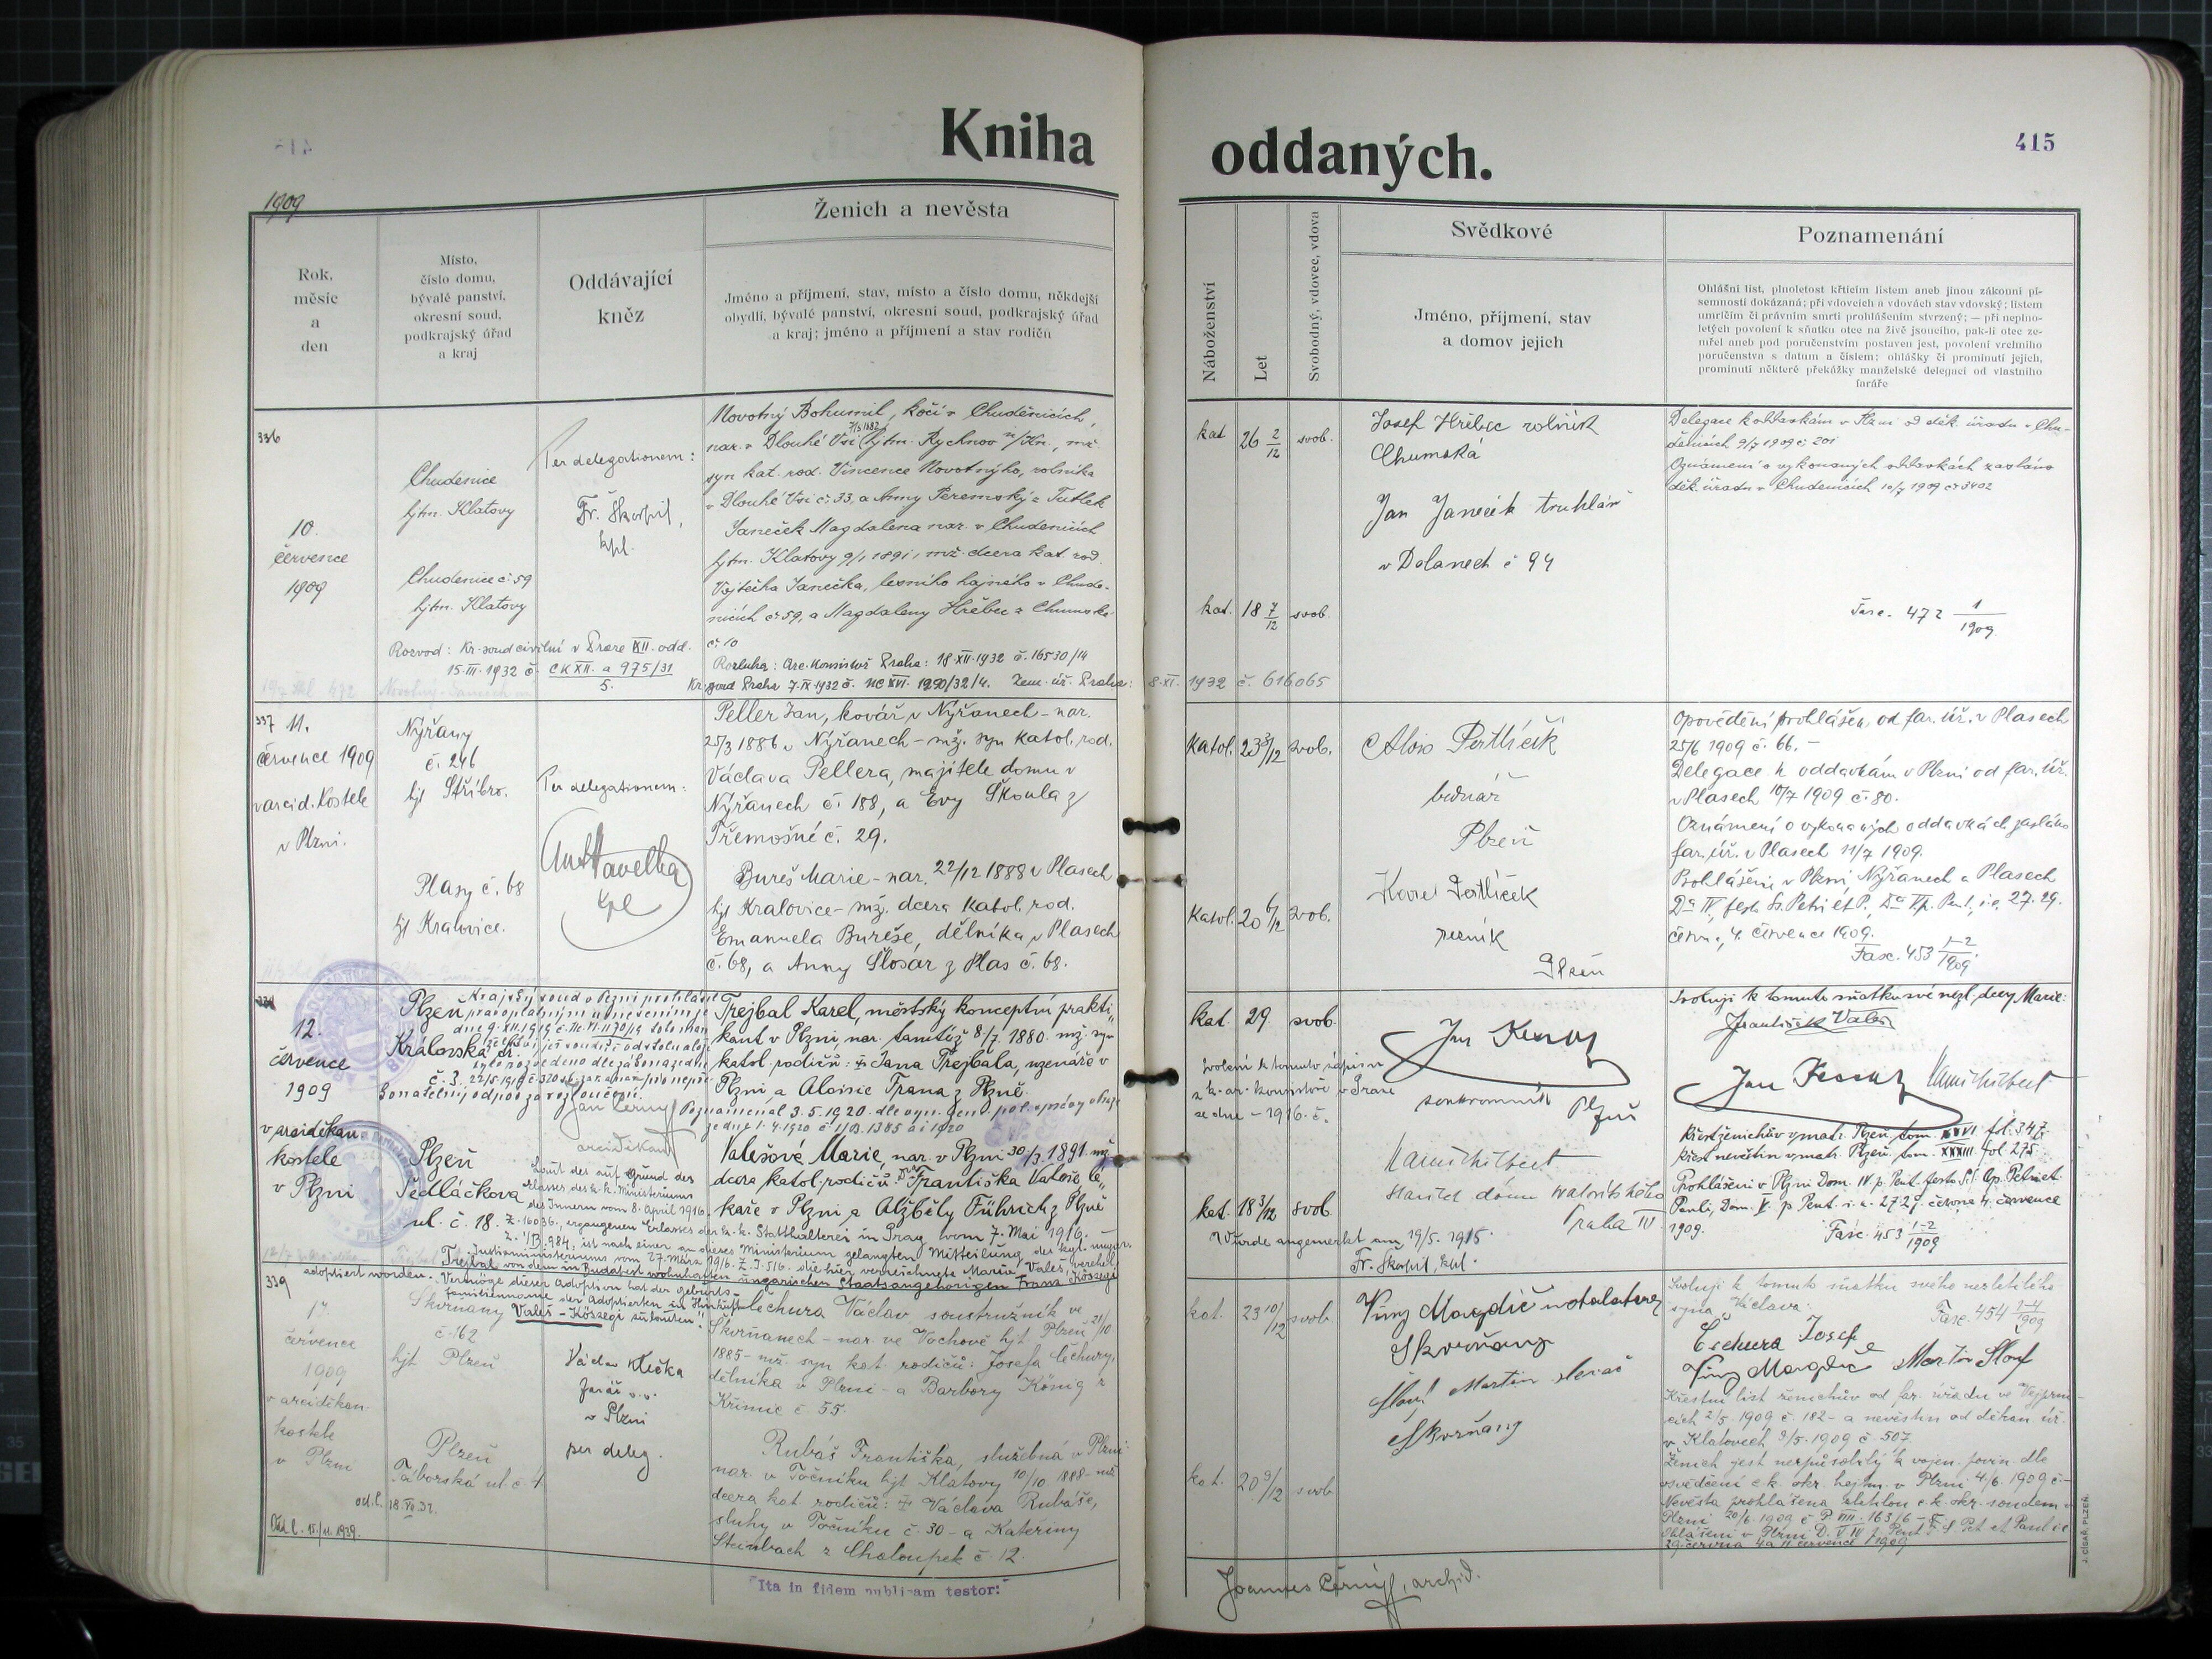 Kniha oddaných.
415
1909
Rok,
měsíc
a
den
Místo,
číslo domu,
bývalé panství,
okresní soud,
podkrajský úřad
a kraj
Oddávající
kněz
Ženich a nevěsta
Jméno a příjmení, stav, místo a číslo domu, někdejší
obydlí, bývalé panství, okresní soud, podkrajský úřad
a kraj; jméno a příjmení a stav rodičů
Náboženství
Let
Svobodný, vdovec, vdova
Svědkové
Jméno, příjmení, stav
a domov jejich
Poznamenání
Ohlášní list, plnoletost křticím listem aneb jinou zákonní pí-
semností dokázaná; při vdovcích a vdovách stav vdovský; listem
umrlčím či právním smrti prohlášením stvrzený; — při neplno-
letých povolení k sňatku otce na živě jsoucího, pak-li otec ze-
mřel aneb pod poručenstvím postaven jest, povolení vrchního
poručenstva s datum a číslem; ohlášky či prominutí jejich,
prominutí některé překážky manželské delegací od vlastního
faráře
336
10.
července
1909
Chudenice
hjtm. Klatovy
Chudenice č. 59
hjtm. Klatovy
Per delegationem:
Fr. Škorpil,
kpl.
Novotný Bohumil, kočí v Chudenicích,
7/5 1882
nar. v Dlouhé Vsi hjtm. Rychnov n/Kn., mž.
syn kat. rod. Vincence Novotného, rolníka
v Dlouhé Vsi č. 33, a Anny Peremský z Tutlek
Janeček Magdalena nar. v Chudenicích
hjtm. Klatovy 9/1 1891, mž. dcera kat. rod.
Vojtěcha Janečka, lesního hajného v Chude-
nicích č. 59, a Magdaleny Hřebec z Chumske-
č. 10
Rozvod: Kr. soud civilní v Praze XII. odd.
15. III. 1932 č. CK XII. a 975/31
5.
Rozluka: Arc. Konsistoř Praha: 18. XII. 1932 č. 16530/14
Kr. soud Praha 7. IX. 1932 č. NC XVI. 1290/32/4. Zem. úř. Praha: 8. XI. 1932 č. 616065
kat. 26 2/12 svob.
kat. 18 7/12 svob.
Josef Hřebec rolník
Chumská
Jan Janeček truhlář
v Dolanech č 94
Delegace k oddavkám v Plzni od děk. úřadu v Chu-
denicích 9/7 1909 č. 201
Oznámení o vykonaných oddavkách zasláno
děk. úřadu v Chudenicích 10/7 1909 č. 3402
Fasc. 472 1/1909
337 11.
července 1909
v arcid. kostele
v Plzni.
Nýřany
č. 246
hjt Stříbro.
Plasy č. 68
hjt Kralovice.
Per delegationem:
Ant. Havelka
kpl
Peller Jan, kovář v Nýřanech - nar.
25/3 1886 v Nýřanech - mž. syn katol. rod.
Václava Pellera, majitele domu v
Nýřanech č. 188, a Evy Škoula z
Třemošné č. 29.
Bureš Marie - nar. 22/12 1888 v Plasech
hjt Kralovice - mž. dcera katol. rod.
Emanuela Bureše, dělníka v Plasech
č. 68, a Anny Šlosar z Plas č. 68.
Katol. 23 3/12 svob.
Katol. 20 6/12 svob.
Alois Pertlíček
bednář
Plzeň
Karel Pertlíček
řezník
Plzeň
Opovědění prohlášek od far. úř. v Plasech
25/6 1909 č. 66. -
Delegace k oddavkám v Plzni od far. úř.
v Plasech 10/7 1909 č. 80.
Oznámení o vykonaných oddavkách zasláno
far. úř. v Plasech 11/7 1909.
Prohlášeni v Plzni, Nýřanech a Plasech
Dca IV, festo Ss. Petri et P., Dca V. p. Pent., i. e. 27. 29.
červn., 4. července 1909.
Fasc. 453 1-2/1909
12.
července
1909
v arciděkan.
kostele
v Plzni
Plzeň
Královská tř.
Plzeň
Sedláčkova
ul. č. 18.
Krajský soud v Plzni prohlásil
pravoplatným usnesením ze
dne 9. XII. 1919
Jan Černý
arciděkan
Poznamenal 3. 5. 1920.
Trejbal Karel, městský konceptní prakti-
kant v Plzni, nar. tamtéž 8/7. 1880. mž. syn
katol. rodičů: Jana Trejbala, uzenáře v
Plzni a Aloisie Trana z Plzně.
Valešová Marie, nar. v Plzni 30/3. 1891. mž.
dcera katol. rodičů: Františka Valeše, lé-
kaře v Plzni, a Alžběty Führich z Plzně
Laut des auf Grund des
Erlasses des k. k. Ministeriums
des Innern vom 8. April 1916.
Z. 16036, ergangenen Erlasses der k. k. Statthalterei in Prag vom 7. Mai 1916. -
Z. 1/B. 984, ist nach einer an dieses Ministerium gelangten Mitteilung des kgl. ungar.
Justizministeriums vom 27. März 1916. Z. I. 516. die hier verzeichnete Marie Valeš, verehel.
Trejbal von dem in Budapest wohnhaften ungarischen Staatsangehörigen Franz Köszegi
adoptiert worden. Vermöge dieser Adoption hat der geburts-
familienname der Adoptierten in Hinkunft
"Valeš - Köszegi" zu lauten.
kat. 29. svob.
kat. 18 3/12 svob.
Svolení k tomuto zápisu
z k. ar. konsistoře v Praze
ze dne - 1916. č.
Wurde angemerkt am 19/5. 1915.
Fr. Škorpil, kpl.
soukromník Plzeň
Praha IV
Svoluji k tomuto sňatku své nezl. dcery Marie:
František Valeš
Křest ženichův v matr. Plzeň, tom. XXVI fol. 347.
Křest nevěstin v matr. Plzeň. tom. XXXIII fol. 275.
Prohlášeni v Plzni Dom. IV. p. Pent. festo S.S. Ap. Petri et
Pauli, Dom. V. p. Pent. i. e. 27. 29. června 4. července
1909.
Fasc. 453 1-2/1909
339
17.
července
1909
v arciděkan.
kostele
v Plzni
Skvrňany
č. 162
hjt Plzeň
Plzeň
Táborská ul. č. 4
Václav Klička
farář v. v.
v Plzni
per deleg.
Čechura Václav, soustružník ve
Skvrňanech - nar. ve Vochově hjt Plzeň 21/10
1885 - mž. syn kat. rodičů: Josefa Čechury,
dělníka v Plzni - a Barbory König z
Křimic č 55.
Rubáš Františka, služebná v Plzni -
nar. v Točníku hjt Klatovy 10/10. 1888 - mž.
dcera kat. rodičů: Václava Rubáše,
sluhy v Točníku č. 30 - a Kateřiny
Steinbach z Chaloupek č. 12.
od. l. 18. VI. 32.
Od. l. 15./11. 1939.
kat. 23 10/12 svob.
kat. 20 9/12 svob
Vinz Magdič
Skvrňany
Slouf Martin slevač
Skvrňany
Svoluji k tomuto sňatku svého nezletilého
syna Václava:
Fasc. 454 1-4/1909
Čechura Josef
Vinz Magdič Martin Slouf
Křestní list ženichův od far. úřadu ve Vejprni-
cích 2/5. 1909 č. 182 - a nevěstin od děkan. úř.
v Klatovech 9/5. 1909 č. 507.
Ženich jest nezpůsobilý k vojen. povin. dle
osvědčení c. k. okr. hejtm. v Plzni 4/6. 1909 č. -
Nevěsta prohlášena zletilou c. k. okr. soudem v
Plzni 20/6. 1909 č P VIII. 163/6 -
29. června 4 a 11 července 1909
"Ita in fidem publicam testor:"
Joannes Černý, archid.
J. CÍSAŘ, PLZEŇ.